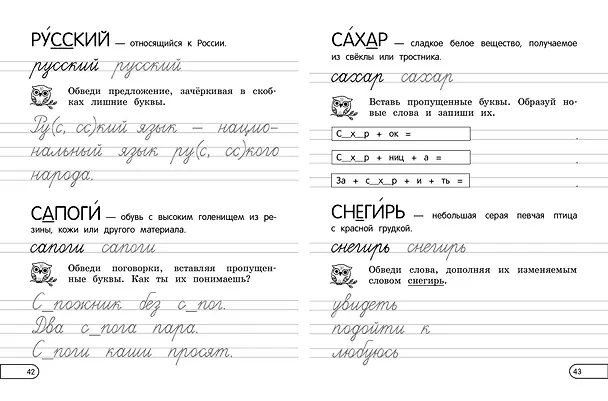 РУ́ССКИЙ — относящийся к России.
русский русский
Обведи предложение, зачёркивая в скоб-
ках лишние буквы.
Ру(с, сс)кий язык — нацио-
нальный язык ру(с, сс)кого
народа.
САПОГИ́ — обувь с высоким голенищем из ре-
зины, кожи или другого материала.
сапоги сапоги
Обведи поговорки, вставляя пропущен-
ные буквы. Как ты их понимаешь?
С_пожник без с_пог.
Два с_пога пара.
С_поги каши просят.
42
СА́ХАР — сладкое белое вещество, получаемое
из свёклы или тростника.
сахар сахар
Вставь пропущенные буквы. Образуй но-
вые слова и запиши их.
С__х__р + ок =
С__х__р + ниц + а =
За + с__х__р + и + ть =
СНЕГИ́РЬ — небольшая серая певчая птица
с красной грудкой.
снегирь снегирь
Обведи слова, дополняя их изменяемым
словом снегирь.
увидеть
подойти к
любуюсь
43